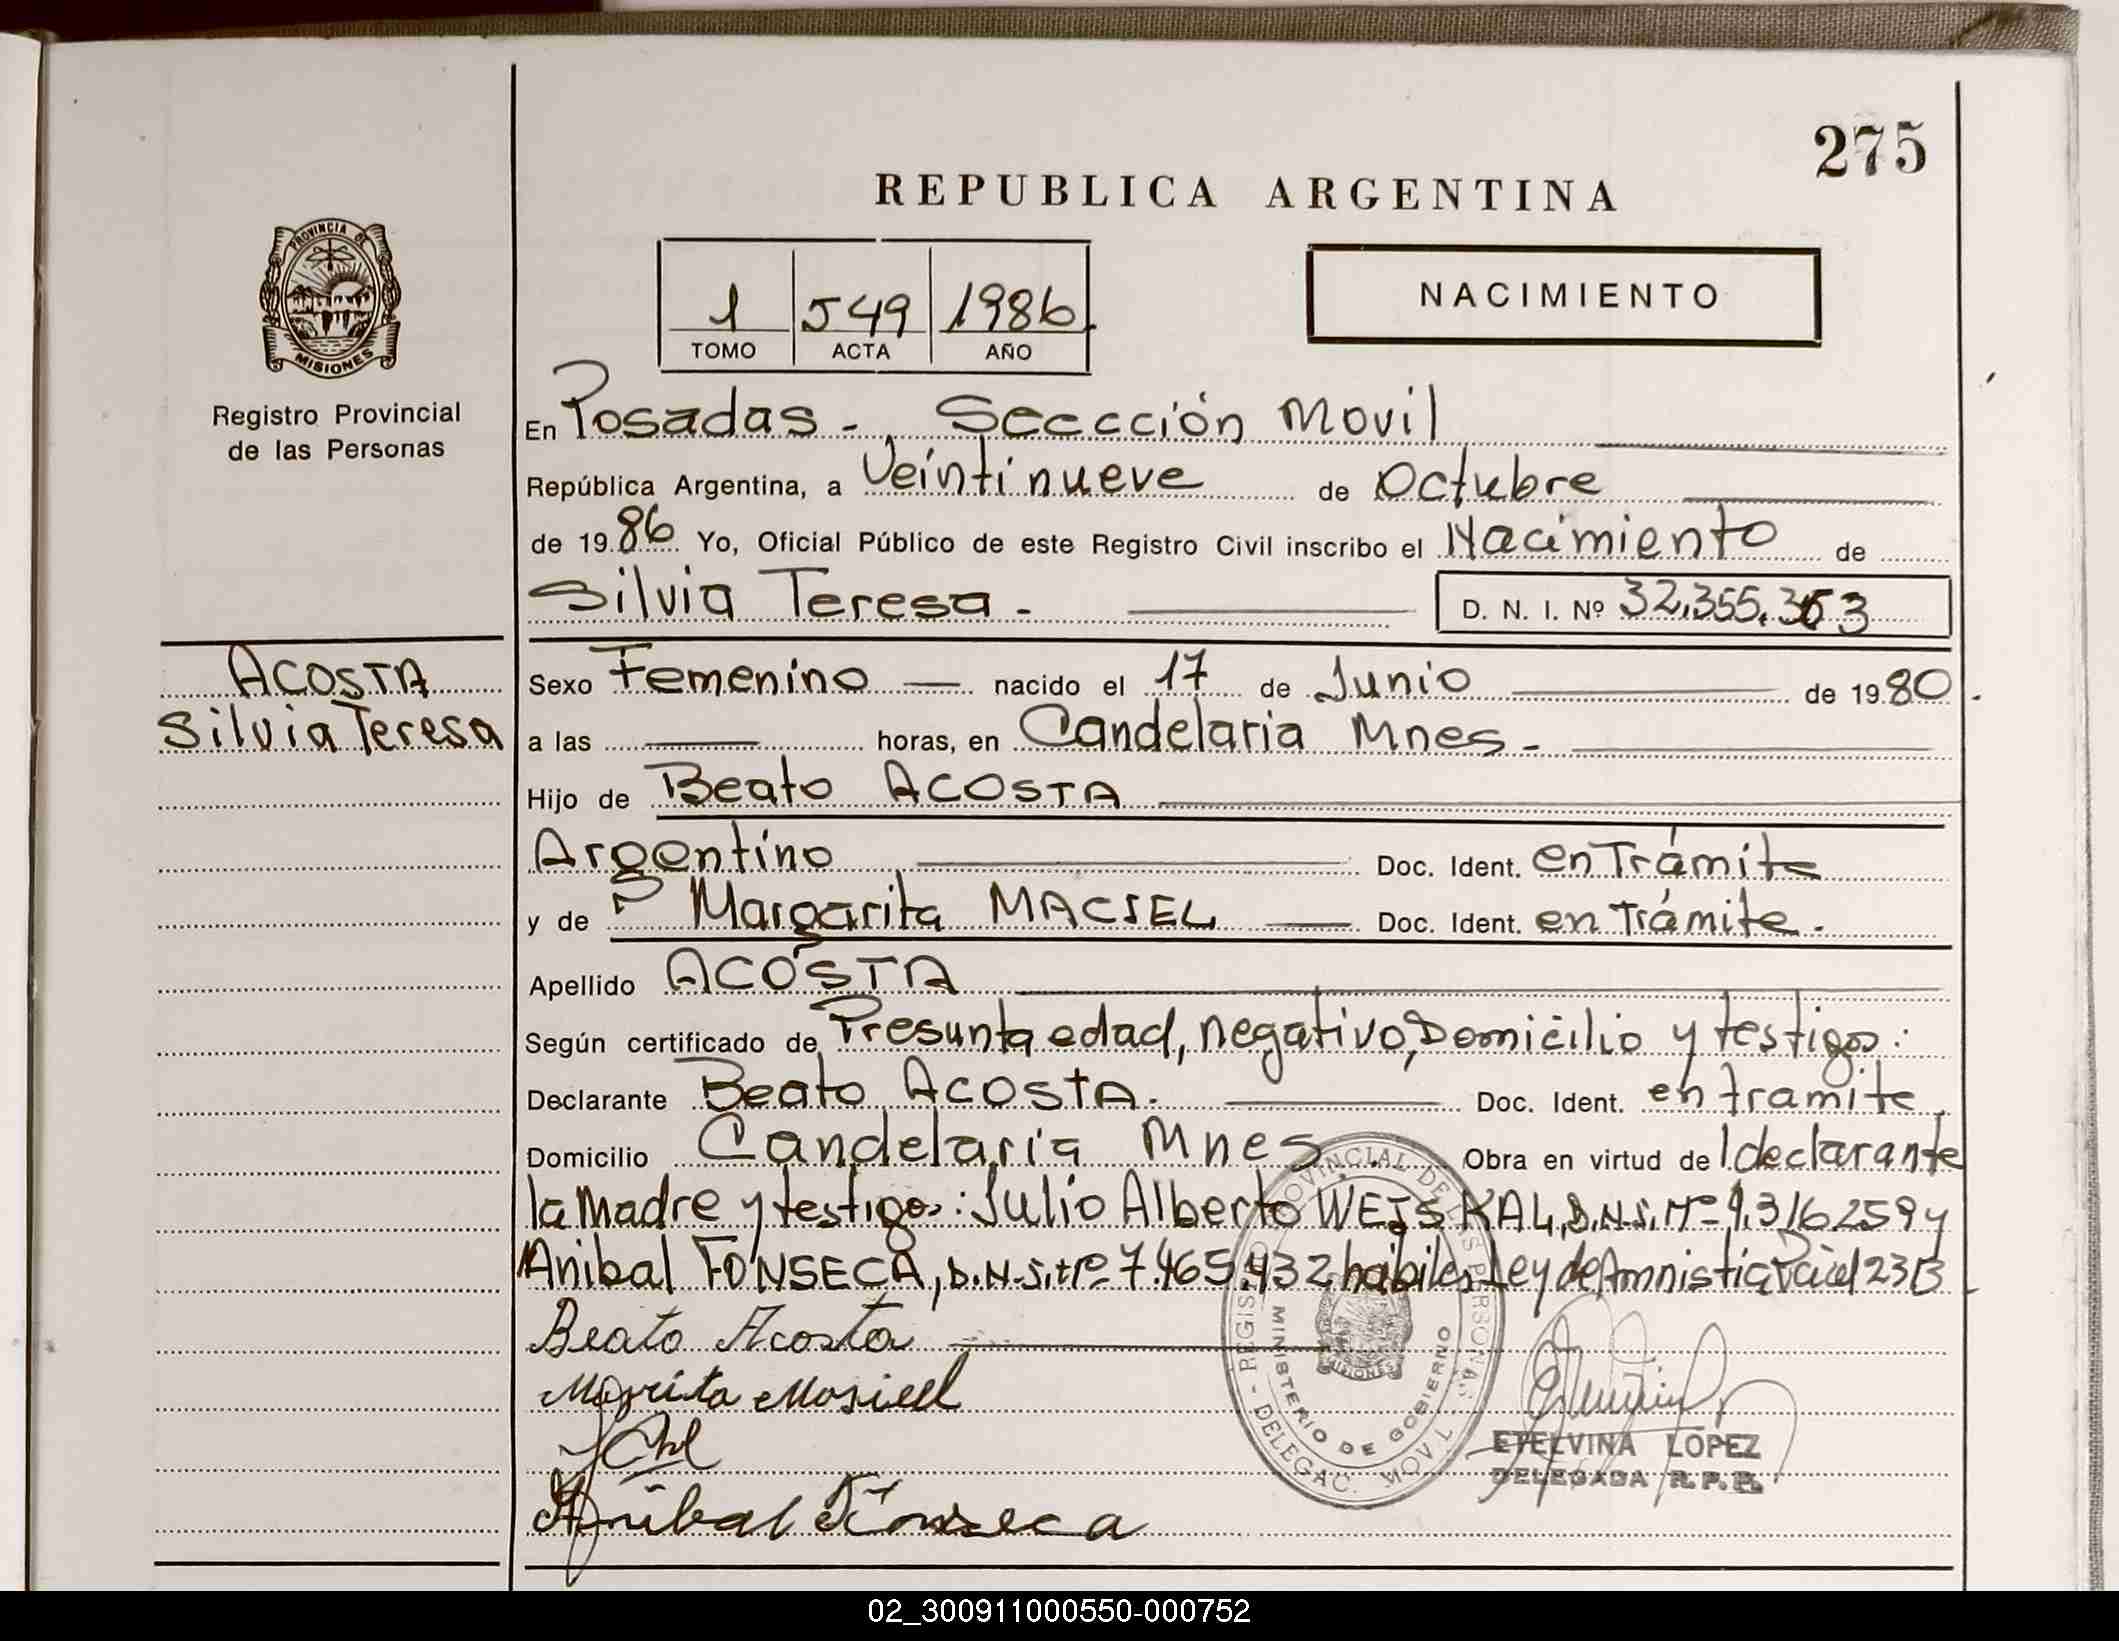 275
REPUBLICA ARGENTINA
1 549 1986
TOMO ACTA AÑO
NACIMIENTO
PROVINCIA DE
MISIONES
Registro Provincial
de las Personas
En Posadas - Seccción Movil
República Argentina, a Veintinueve de Octubre
de 1986 Yo, Oficial Público de este Registro Civil inscribo el Nacimiento de
Silvia Teresa -
D. N. I. Nº 32.355.353
ACOSTA
Silvia Teresa
Sexo Femenino nacido el 17 de Junio de 1980.
a las horas, en Candelaria Mnes -
Hijo de Beato ACOSTA
Argentino Doc. Ident. en Trámite
y de Margarita MACIEL Doc. Ident. en Trámite.
Apellido ACOSTA
Según certificado de Presunta edad, negativo, Domicilio y testigos:
Declarante Beato ACOSTA. Doc. Ident. en tramite,
Domicilio Candelaria Mnes. Obra en virtud de l declarante
la Madre y testigos: Julio Alberto WEISKAL, D.N.I. Nº 9.316259 y
Anibal FONSECA, D.N.I. Nº 7.465.432 habiles Ley de Amnistia 2313
Beato Acosta
Anibal Fonseca
REGISTRO PROVINCIAL DE LAS PERSONAS - DELEGAC. MOVIL
MINISTERIO DE GOBIERNO
MISIONES
ETELVINA LOPEZ
DELEGADA R.P.P.
02_300911000550-000752